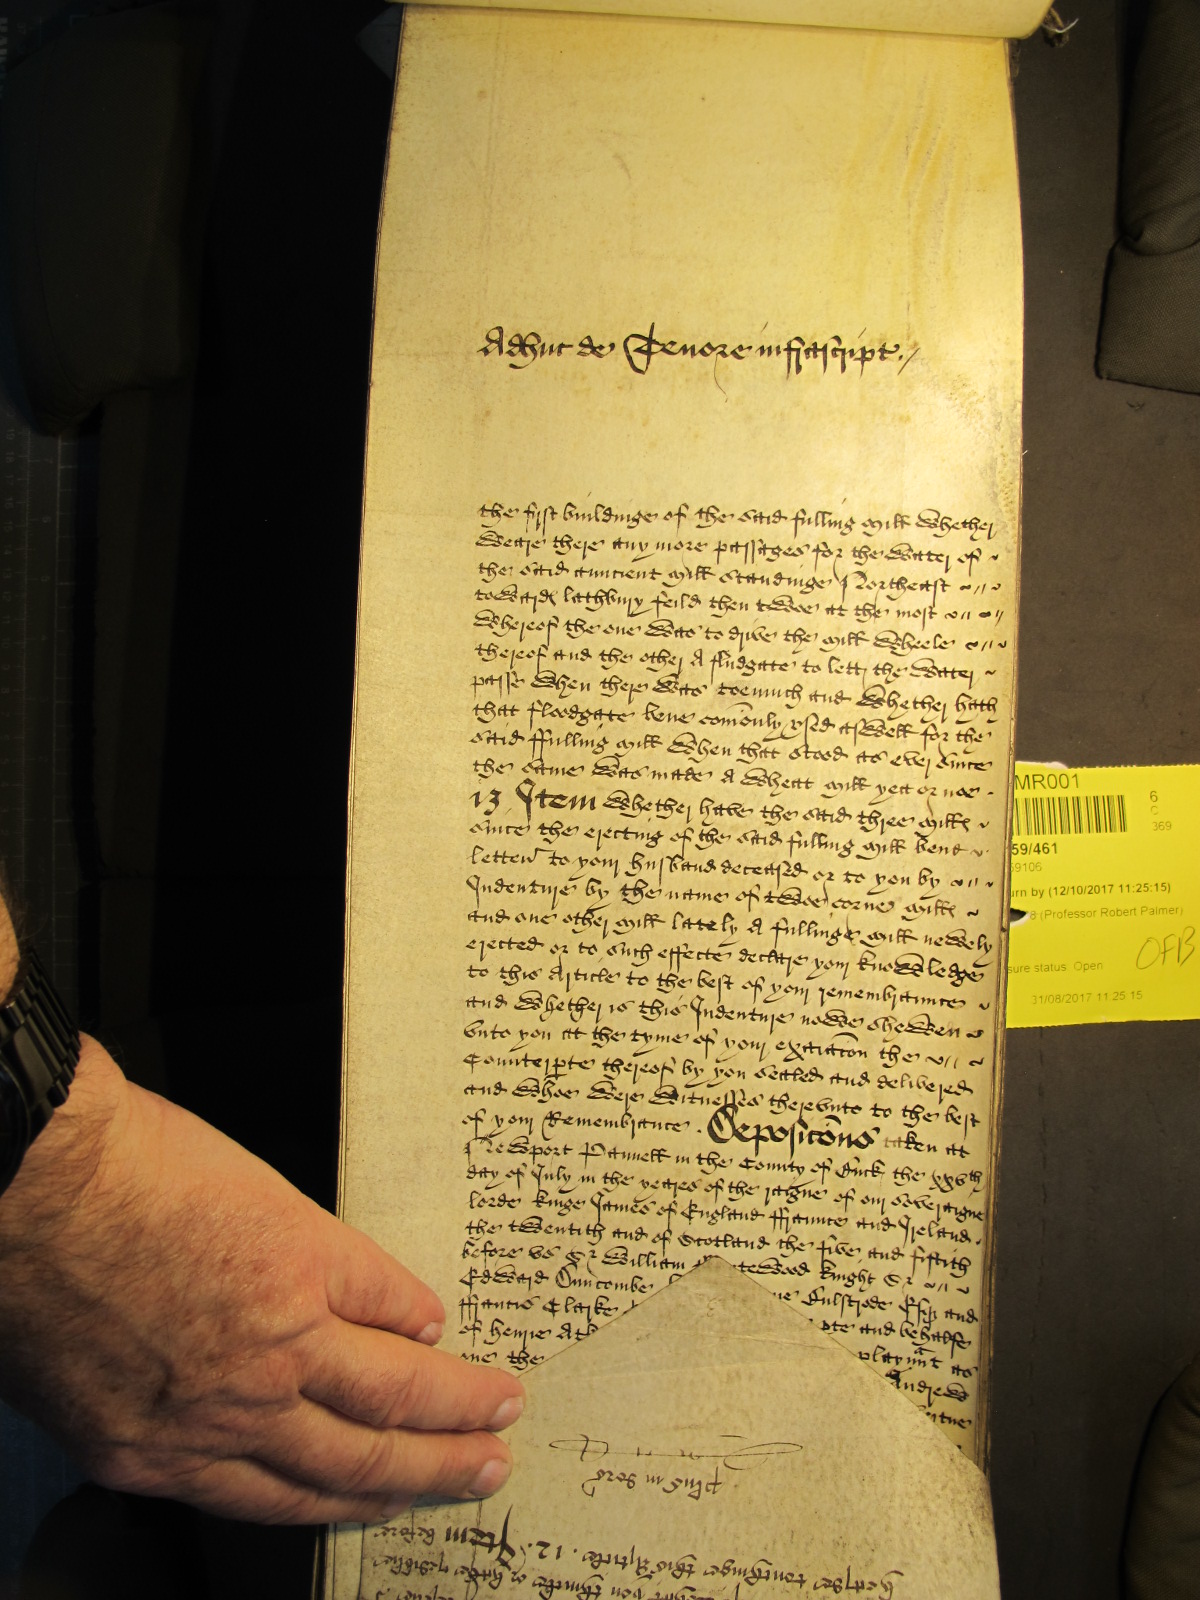 Adhuc de Tenore infrascript.
the first buildinge of the said fulling mill whether
weare there any more passages for the water of
the said auncient mill standinge Northeast
towards lathbury feild then twoe at the most
whereof the one was to drive the mill wheele
thereof and the other A fludgate to lett the water
passe when there was toe much and whether hath
that floodgate bene comonly vsed aswell for the
said ffulling mill when that stood as ever since
the same was made A wheat mill yea or noe
13 Item whether have the said three mills
since the erecting of the said fulling mill bene
letten to your husband deceased or to you by
Indenture by the name of twoe corne mills
and one other mill lately A fullinge mill newely
erected or to such effecte declare your knowledge
to this Article to the best of your remembraunce
and whether is this Indenture nowe shewen
vnto you at the tyme of your exaiacon the
Counterpte thereof by you sealed and delivered
and whoe were witnesses therevnto to the best
of your Remembrance. Deposicons taken at
Newport Pannell in the County of Buck the xxvth
day of July in the yeares of the raigne of our soveraigne
lorde kinge James of England ffraunce and Ireland
the twentith and of Scotland the five and fiftith
before vs Sr William knight Sr
Edward Duncombe Culstrode Esqr and
ffrancis Clarke pte and behalfe
of henrie playnt as
one the Andrew
MR001
6
C
369
59/461
69106
urn by (12/10/2017 11:25:15)
8 (Professor Robert Palmer)
sure status Open
OFB
31/08/2017 11:25:15
plus in dorso
hereafter touchinge this Article. 12. Item before